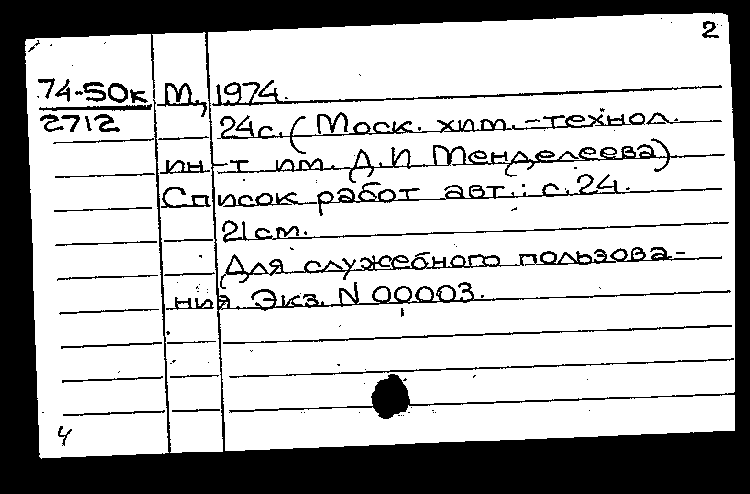 2
74-50к М., 1974.
2712 24с. (Моск. хим.-технол.
ин-т им. Д.И Менделеева)
Список работ авт.: с. 24.
21 см.
Для служебного пользова-
ния. Экз. N 00003.
4